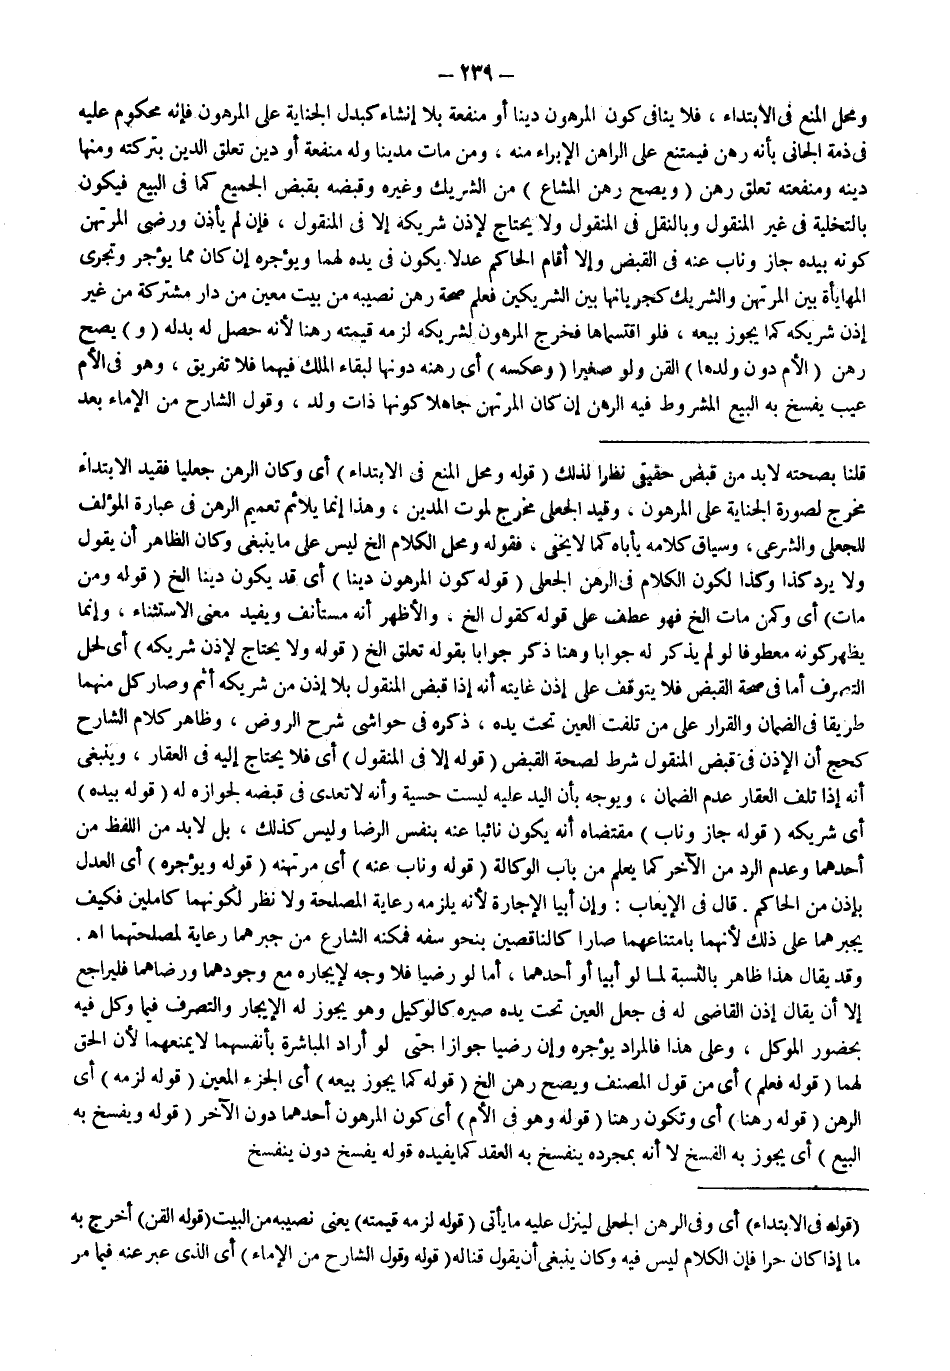 – ٢٣٩ –
ومحل المنع فى الابتداء ، فلا ينافى كون المرهون دينا أو منفعة بلا إنشاء كبدل الجناية على المرهون فإنه محكوم عليه
فى ذمة الجانى بأنه رهن فيمتنع على الراهن الإبراء منه ، ومن مات مدينا وله منفعة أو دين تعلق الدين بتركته ومنها
دينه ومنفعته تعلق رهن ( ويصح رهن المشاع ) من الشريك وغيره وقبضه بقبض الجميع كما فى البيع فيكون
بالتخلية فى غير المنقول وبالنقل فى المنقول ولا يحتاج لإذن شريكه إلا فى المنقول ، فإن لم يأذن ورضى المرتهن
كونه بيده جاز وناب عنه فى القبض وإلا أقام الحاكم عدلا يكون فى يده لهما ويؤجره إن كان مما يؤجر وتجرى
المهايأة بين المرتهن والشريك كجريانها بين الشريكين فعلم صحة رهن نصيبه من بيت معين من دار مشتركة من غير
إذن شريكه كما يجوز بيعه ، فلو اقتسماها فخرج المرهون لشريكه لزمه قيمته رهنا لأنه حصل له بدله ( و ) يصح
رهن ( الأم دون ولدها ) القن ولو صغيرا ( وعكسه ) أى رهنه دونها لبقاء الملك فيهما فلا تفريق ، وهو فى الأم
عيب يفسخ به البيع المشروط فيه الرهن إن كان المرتهن جاهلا كونها ذات ولد ، وقول الشارح من الإماء بعد
قلنا بصحته لابد من قبض حقيقى نظرا لذلك ( قوله ومحل المنع فى الابتداء ) أى وكان الرهن جعليا فقيد الابتداء
مخرج لصورة الجناية على المرهون ، وقيد الجعلى مخرج لموت المدين ، وهذا إنما يلائم تعميم الرهن فى عبارة المؤلف
للجعلى والشرعى ، وسياق كلامه يأباه كما لايخفى ، فقوله ومحل الكلام الخ ليس على ماينبغى وكان الظاهر أن يقول
ولا يرد كذا وكذا لكون الكلام فى الرهن الجعلى ( قوله كون المرهون دينا ) أى قد يكون دينا الخ ( قوله ومن
مات ) أى وكمن مات الخ فهو عطف على قوله كقول الخ ، والأظهر أنه مستأنف ويفيد معنى الاستثناء ، وإنما
يظهر كونه معطوفا لو لم يذكر له جوابا وهنا ذكر جوابا بقوله تعلق الخ ( قوله ولا يحتاج لإذن شريكه ) أى لحل
التصرف أما فى صحة القبض فلا يتوقف على إذن غايته أنه إذا قبض المنقول بلا إذن من شريكه أثم وصار كل منهما
طريقا فى الضمان والقرار على من تلفت العين تحت يده ، ذكره فى حواشى شرح الروض ، وظاهر كلام الشارح
كحج أن الإذن فى قبض المنقول شرط لصحة القبض ( قوله إلا فى المنقول ) أى فلا يحتاج إليه فى العقار ، وينبغى
أنه إذا تلف العقار عدم الضمان ، ويوجه بأن اليد عليه ليست حسية وأنه لاتعدى فى قبضه لجوازه له ( قوله بيده )
أى شريكه ( قوله جاز وناب ) مقتضاه أنه يكون نائبا عنه بنفس الرضا وليس كذلك ، بل لابد من اللفظ من
أحدهما وعدم الرد من الآخر كما يعلم من باب الوكالة ( قوله وناب عنه ) أى مرتهنه ( قوله ويؤجره ) أى العدل
بإذن من الحاكم . قال فى الإيعاب : وإن أبيا الإجارة لأنه يلزمه رعاية المصلحة ولا نظر لكونهما كاملين فكيف
يجبرهما على ذلك لأنهما بامتناعهما صارا كالناقصين بنحو سفه فمكنه الشارع من جبرهما رعاية لمصلحتهما اه .
وقد يقال هذا ظاهر بالنسبة لما لو أبيا أو أحدهما ، أما لو رضيا فلا وجه لإيجاره مع وجودهما ورضاهما فليراجع
إلا أن يقال إذن القاضى له فى جعل العين تحت يده صيره كالوكيل وهو يجوز له الإيجار والتصرف فيما وكل فيه
بحضور الموكل ، وعلى هذا فالمراد يؤجره وإن رضيا جوازا حتى لو أراد المباشرة بأنفسهما لايمنعهما لأن الحق
لهما ( قوله فعلم ) أى من قول المصنف ويصح رهن الخ ( قوله كما يجوز بيعه ) أى الجزء المعين ( قوله لزمه ) أى
الرهن ( قوله رهنا ) أى وتكون رهنا ( قوله وهو فى الأم ) أى كون المرهون أحدهما دون الآخر ( قوله ويفسخ به
البيع ) أى يجوز به الفسخ لا أنه بمجرده ينفسخ به العقد كما يفيده قوله يفسخ دون ينفسخ
(قوله فى الابتداء) أى وفى الرهن الجعلى لينزل عليه مايأتى ( قوله لزمه قيمته) يعنى نصيبه من البيت (قوله القن) أخرج به
ما إذا كان حرا فإن الكلام ليس فيه وكان ينبغى أن يقول قناله ( قوله وقول الشارح من الإماء ) أى الذى عبر عنه فيما مر